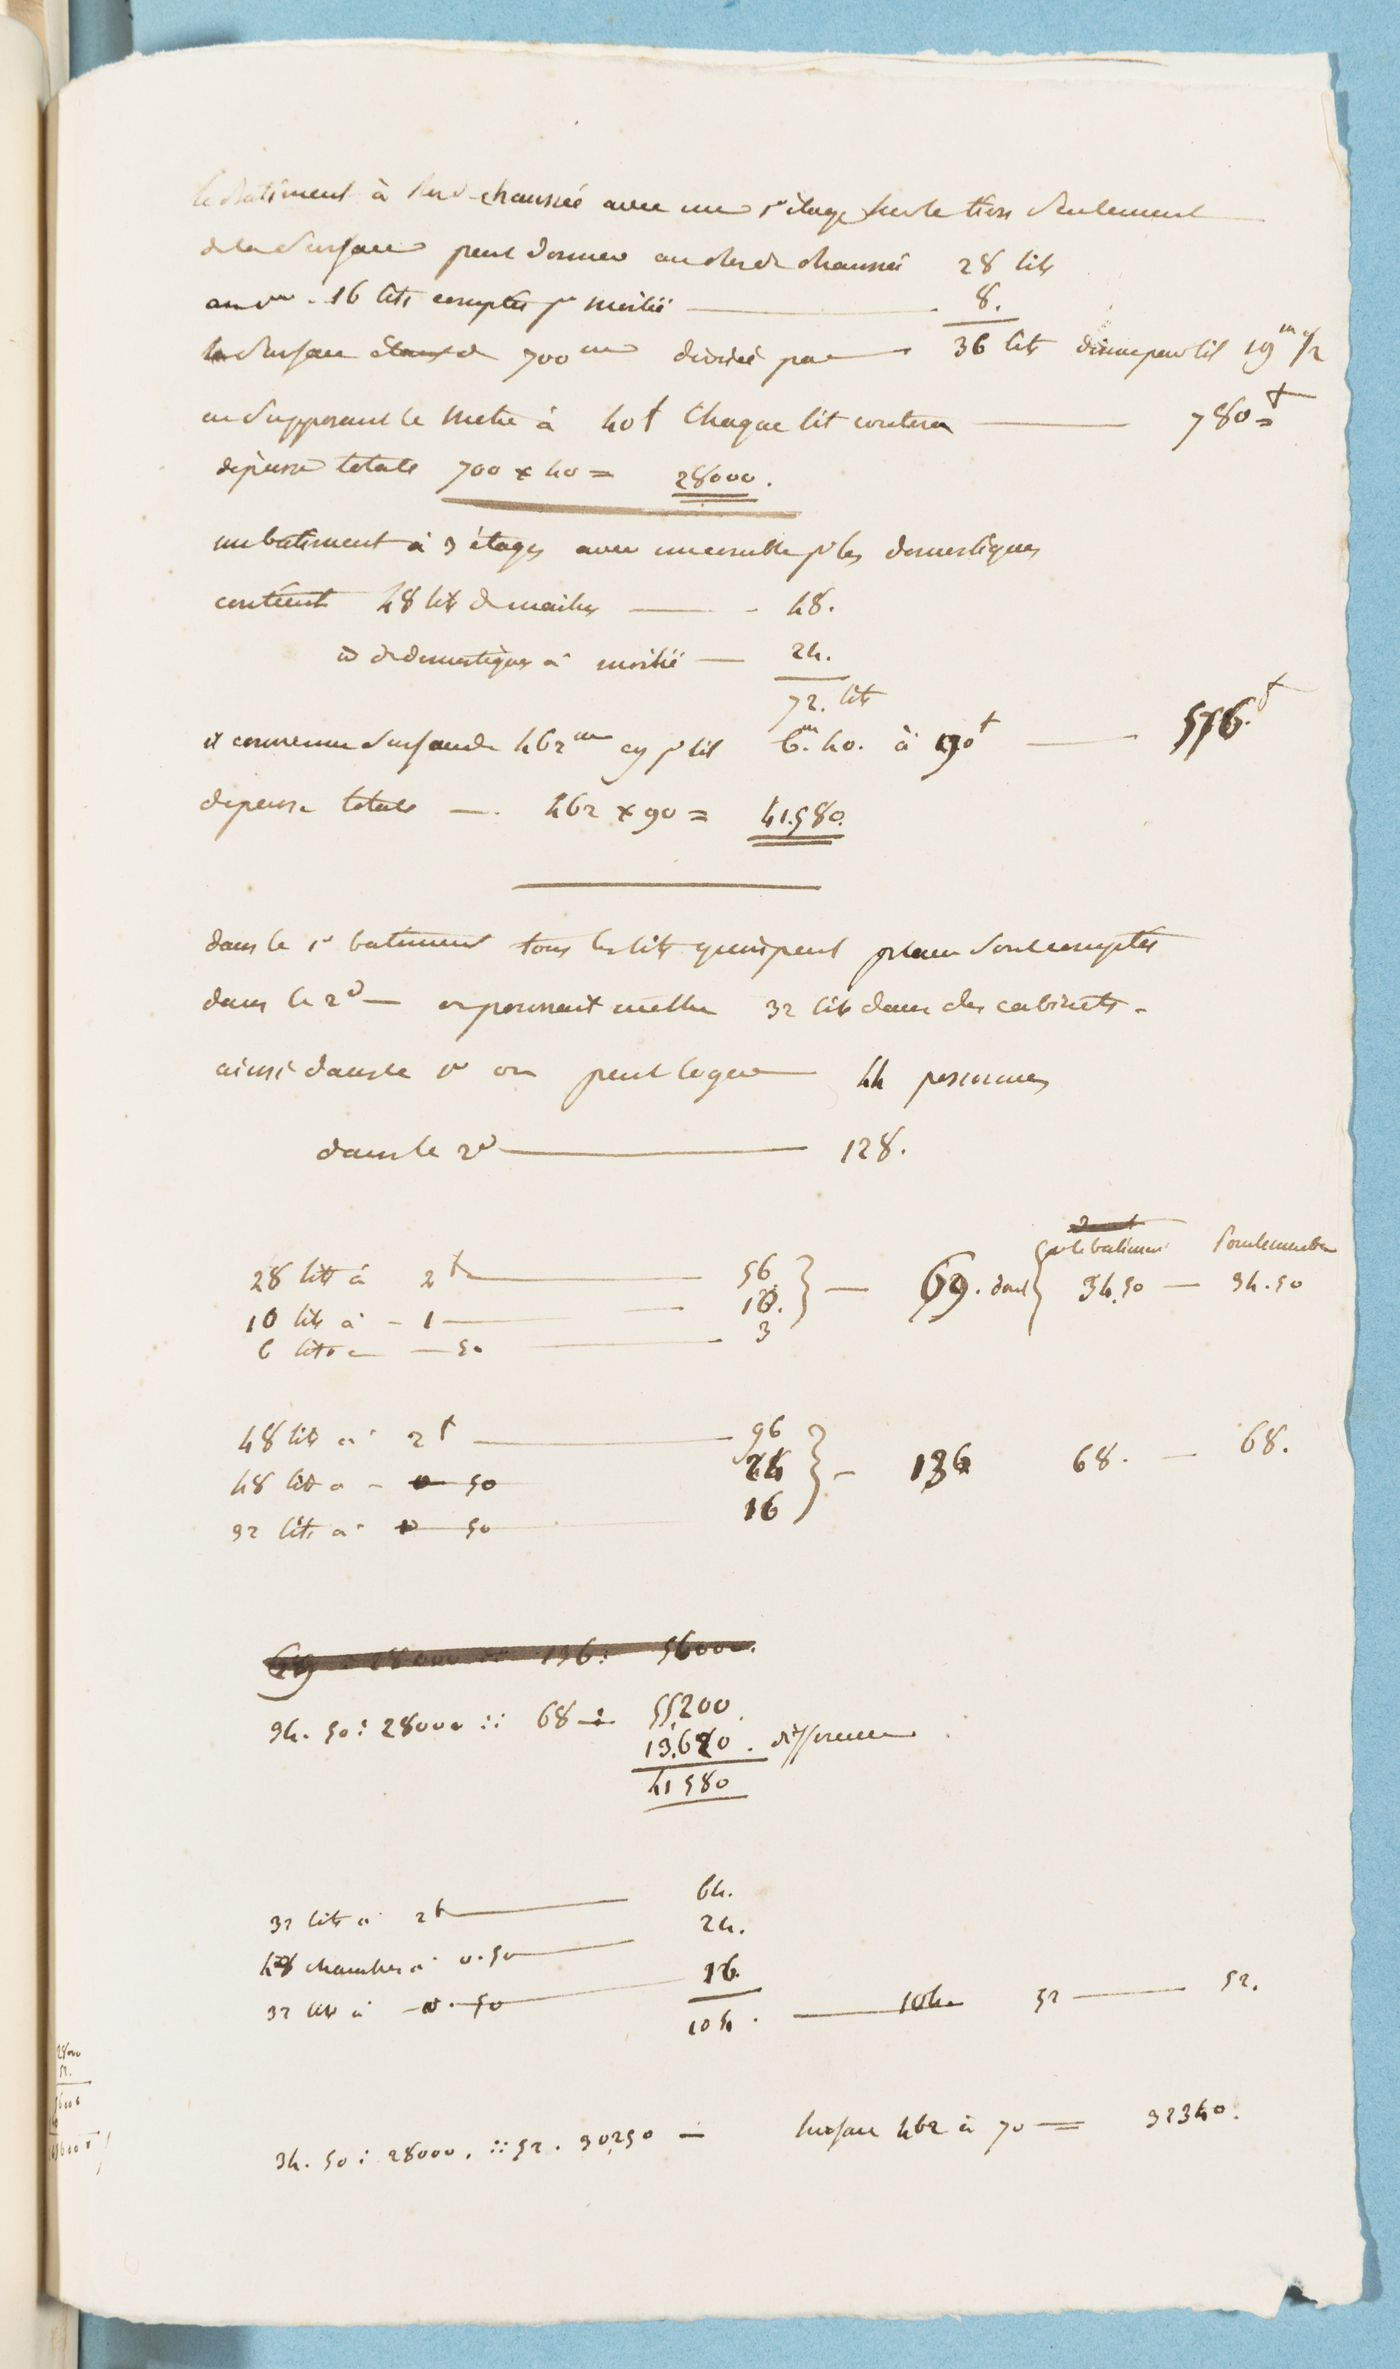 le batiment à rez de chaussée avec un 1er étage sur le tiers seulement
de la surface peut donner au rez de chaussée 28 lits
au 1er - 16 lits comptés pr moitié — 8.
la surface étant de 700 m divisée par — 36 lits donne par lit 19 m ½
en supposant le metre à 40 f Chaque lit coutera — 780 f =
dépense totale 700 x 40 = 28000.
un batiment à 3 étages avec un comble pr les domestiques
contient 48 lits de maitres — 48.
id de domestiques à moitié — 24.
72. lits
et comme une surface de 462 m cy pr lit 6 m. 40. à 90 f — 576. f
depense totale — 462 x 90 = 41.580.
dans le 1er batiment tous les lits qu'on peut placer sont comptés
dans le 2d — on pourrait mettre 32 lits dans des cabinets.
ainsi dans le 1er on peut loger 44 personnes
dans le 2d — 128.
pr le batiment
28 lits à 2 f — 56. } — 69. dont { 34.50 — 34.50
10 lits à - 1 — 10.
6 lits a — 50 — 3
48 lits a 2 f — 96
48 lits a - 50 24 } — 136 68. — 68.
32 lits a 50 — 16
69 : 28000 :: 136 : 56000.
34. 50 : 28000 :: 68 : 55,200.
13,620. difference
41580
32 lits a 2 f — 64.
48 chambres a 0.50 — 24.
32 lits à — 0. 50 — 16.
104. — 104. 52 — 52.
28000
52.
34. 50 : 28000. :: 52. 30250 — surface 462 à 70 = 32340.